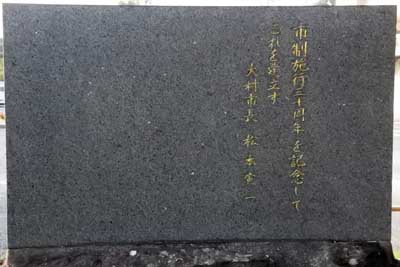 市制施行三十周年を記念して
これを建立す
大村市長 松本寅一